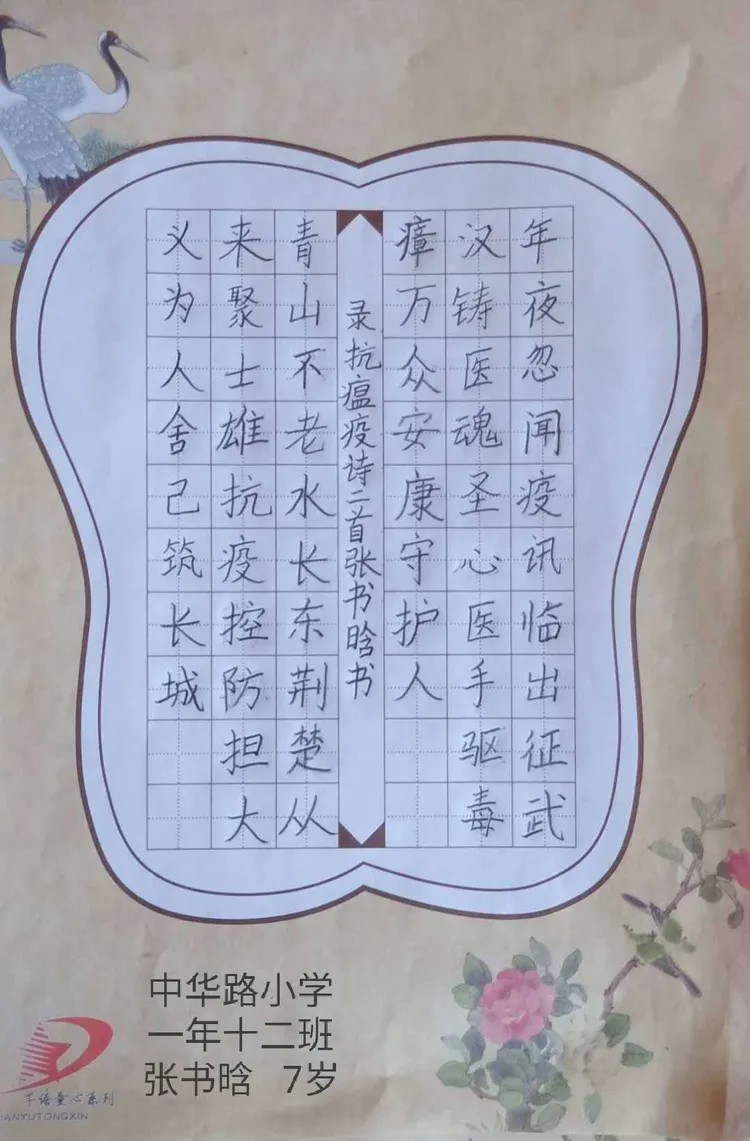 年夜忽闻疫讯临出征武
汉铸医魂圣心医手驱毒
瘴万众安康守护人
录抗瘟疫诗二首张书晗书
青山不老水长东荆楚从
来聚士雄抗疫控防担大
义为人舍己筑长城
中华路小学
一年十二班
张书晗 7岁
IANYUTONGXIN